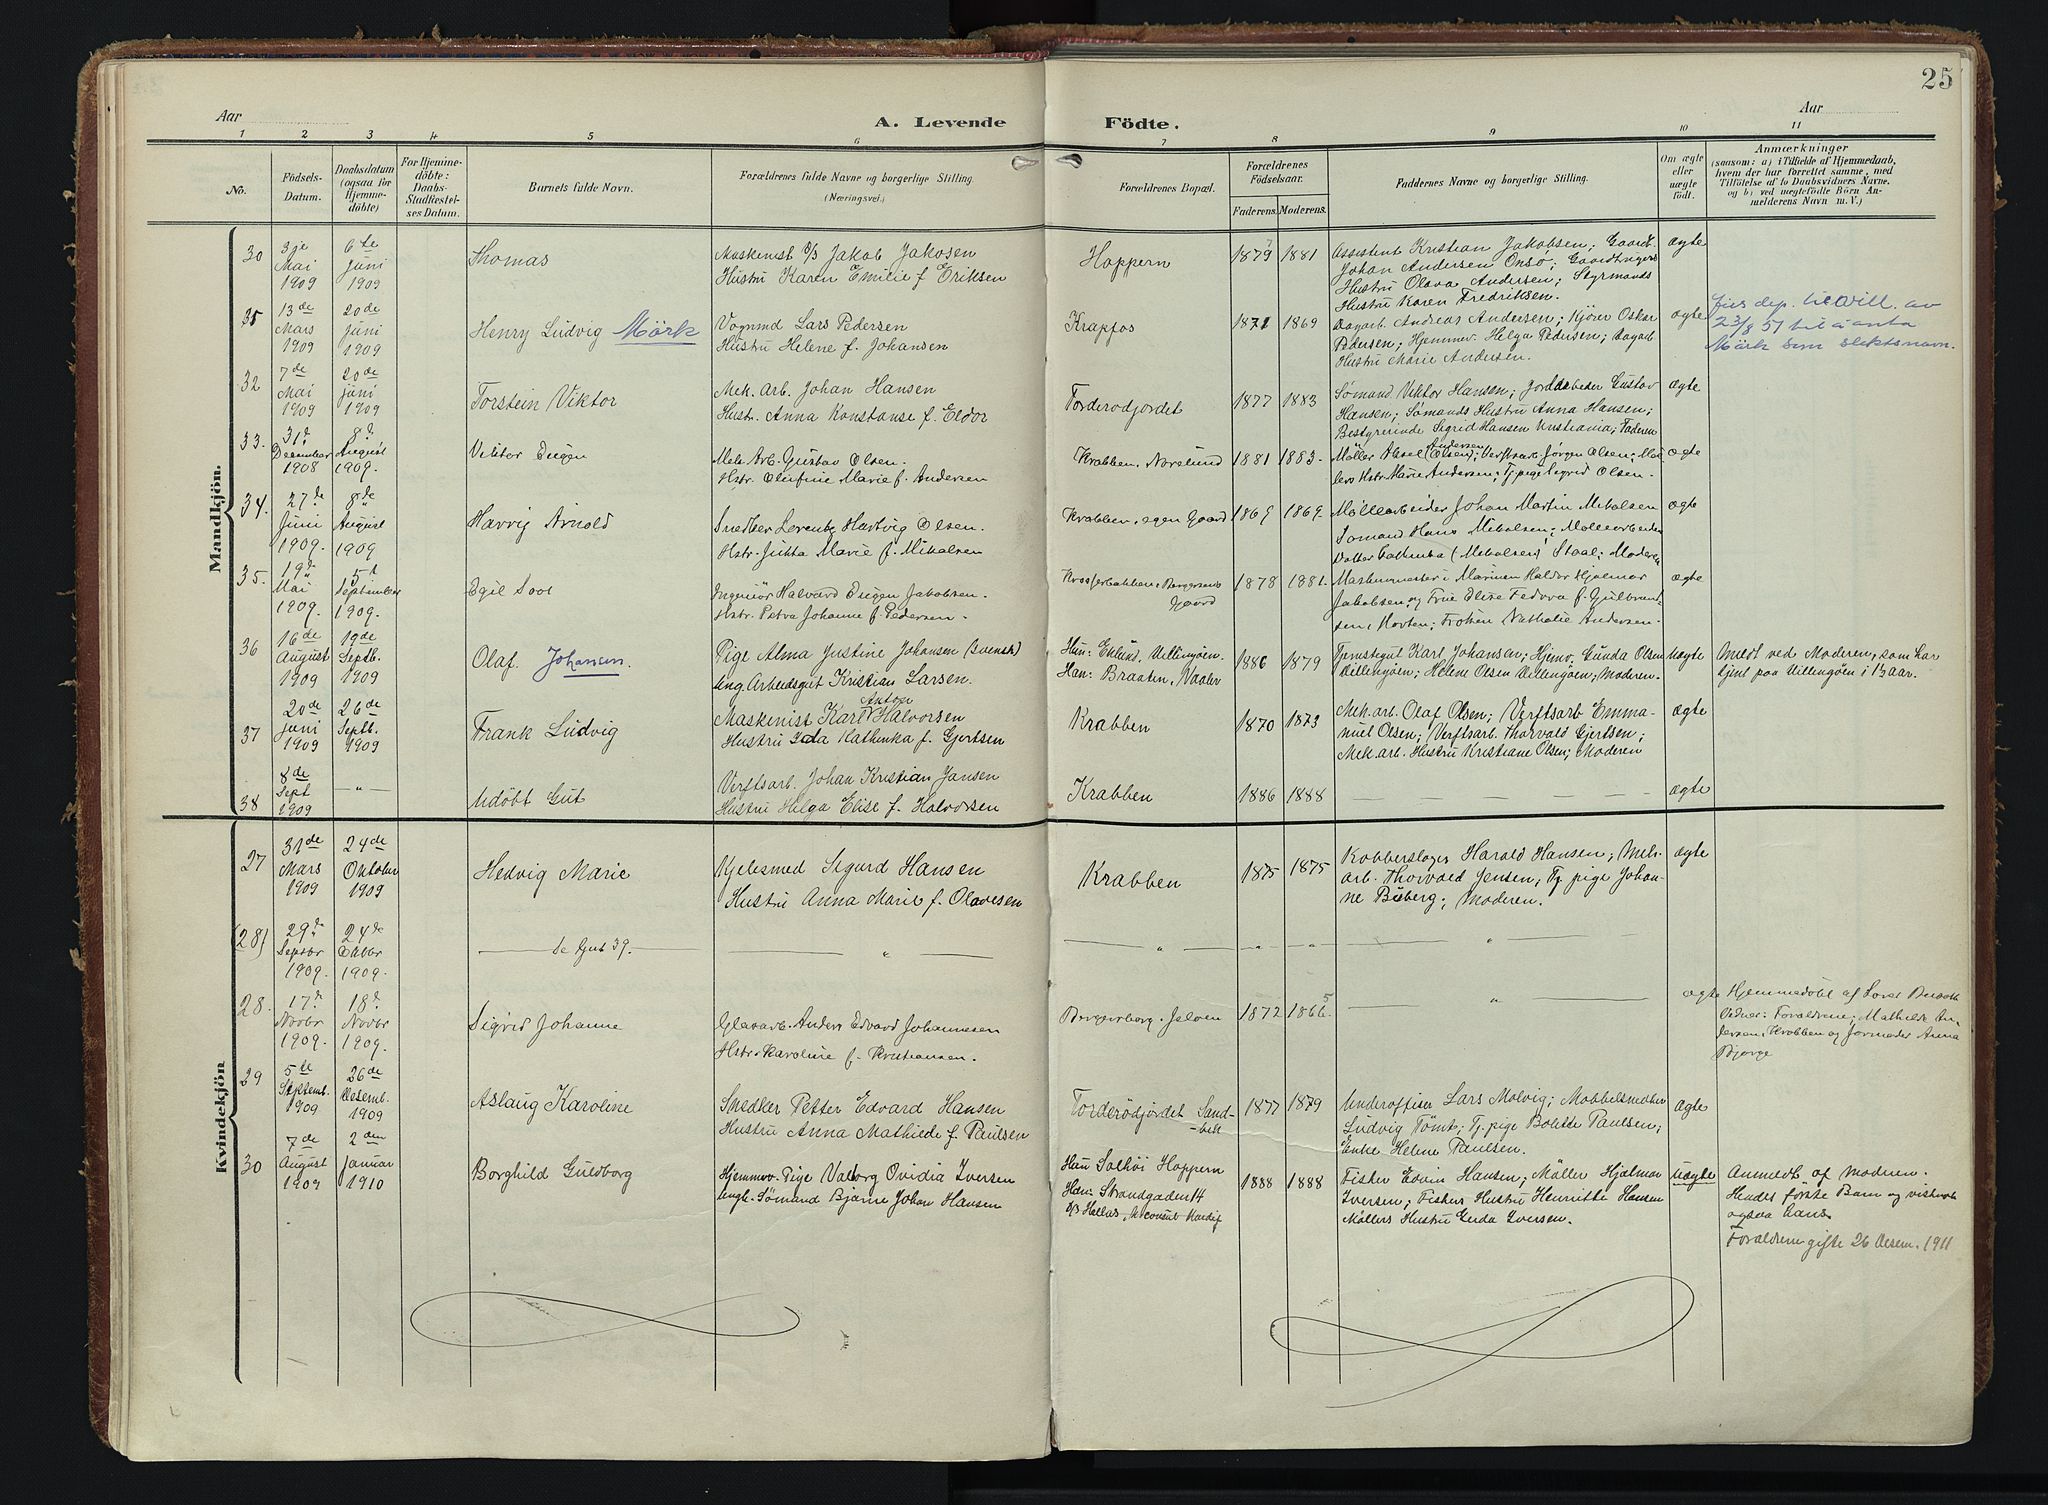 25
Aar
A. Levende Födte.
Aar
1 2 3 4 5 6 7 8 9 10 11
No.
Födsels-Datum.
Daabsdatum (ogsaa for Hjemmedöbte)
For Hjemmedöbte: Daabs-Stadfæstelses Datum.
Barnets fulde Navn.
Forældrenes fulde Navne og borgerlige Stilling. (Næringsvei.)
Forældrenes Bopæl.
Forældrenes Födselsaar.
Faderens. Moderens.
Faddernes Navne og borgerlige Stilling.
Om ægte eller uægte födt.
Anmærkninger
(saasom: a) i Tilfælde af Hjemmedaab, hvem der har forrettet samme, med Tilföielse af to Daabsvidners Navne, og b) ved uægtefödte Börn Anmelderens Navn m. V.)
Mandkjön.
30 3je Mai 1909 6te Juni 1909 Thomas
Maskinist Jakob Jakobsen
Hustru Karen Emilie f. Eriksen
Hoppern 1879 1881
Assistent Kristian Jakobsen; Gaardb.
Johan Andersen Onsö; Gaardbrugers
Hustru Olava Andersen; Styrmands
Hustru Karen Fredriksen.
ægte
35 13de Mars 1909 20de Juni 1909 Henry Ludvig Mörk
Vognmd Lars Pedersen
Hustru Helene f. Johansen
Krapfos 1871 1869
Dagarb. Andreas Andersen; Kjörer Oskar
Pedersen; Hjemmev. Helga Pedersen; Dagarb
Hustru Marie Andersen.
ægte
Jus dep. tilvill. av
23/8 51 til å anta
Mörk som slektsnavn.
32 7de Mai 1909 20de Juni 1909 Torstein Viktor
Mek. Arb. Johan Hansen
Hustr. Anna Konstanse f. Eldor
Torderodjordet 1877 1883
Sømand Viktor Hansen; Jordarbeder Gustav
Hansen; Sømands Hustru Anna Hansen;
Bestyrerinde Sigrid Hansen Kristiania; Faderen
ægte
33. 31te December 1908 8de August 1909. Viktor Eugen
Mek. Arb. Gustav Olsen.
Hstr. Olufine Marie f. Andersen
Krabben, Norelund 1881 1883.
Møller Aksel (Olsen) Andersen; Verftsarb Jørgen Olsen; Møl-
lers Hstr. Marie Andersen; Tj.pige Sigrid Olsen.
ægte
34. 27de Juni 1909. 8de August 1909. Harvig Arnold
Snedker Lorentz Hartvig Olsen.
Hstr. Jutta Marie f. Mikalsen
Krabben, egen Gaard 1869 1869.
Møllearbeider Johan Martin Mikalsen
Sømand Hans Mikalsen; Møllearbeider
Valter Cathinka (Mikalsen) Staal; Moderen
ægte
35. 19de Mai 1909. 5t September 1909. Egil Soot
Ingeniör Halvard Eugen Jakobsen.
Hstr. Petra Johanne f. Pedersen.
Krosserbakken, Borgersens Gaard 1878 1881.
Maskinmester i Marinen Haldor Hjalmar
Jakobsen og Frue Elise Fedova f. Gulbrand-
sen, Horten; Frøken Nathalie Andersen.
ægte
36 16de August 1909 19de Septb. 1909 Olaf Johansen.
Pige Alma Justine Johansen (Svensk)
Ung. Arbeidsgut Kristian Larsen.
Hun: Eklund, Villingöen.
Han: Braaten, Vaaler
1886 1879
Tjenestegut Karl Johansen; Hjemv. Gunda Olsen
Villingöen; Helene Olsen Villingöen; Moderen.
Uægte
Meldt ved Moderen, som har
tjent paa Villingöen i 1½ aar.
37 20de Juni 1909 26de Septb. 1909 Frank Ludvig
Maskinist Karl Anton Halvorsen
Hustru Ida Kathinka f. Gjertsen
Krabben 1870 1873
Mek. arb. Olaf Olsen; Verftsarb Emma-
nuel Olsen; Verftsarb. Thorvald Gjertsen;
Mek. arb. Hustru Kristiane Olsen; Moderen
ægte
38 8de Sept 1909 —"— Udöbt Gut
Verftsarb. Johan Kristian Jansen
Hustru Helga Elise f. Halvorsen
Krabben 1886 1888 ægte
Kvindekjön
27 31de Mars 1909 24de Oktober 1909 Hedvig Marie
Kjelesmed Sigurd Hansen
Hustru Anna Marie f. Olavesen
Krabben 1875 1875
Kobberslager Harald Hansen; Mek.
arb. Thorvald Jensen; Tj. pige Johan-
ne Buberg; Moderen.
ægte
(28) 29de Septbr 1909. 24de Oktbr 1909. — Se Gut 39. —
28. 17de Novbr 1909. 18de Novbr 1909. Sigrid Johanne
Glasarb. Anders Edvard Johannesen
Hstr. Karoline f. Kristiansen.
Bergersborg, Jeløen 1872 1866 5
ægte
Hjemmedöbt af
Vidner: Forældrene; Mathilde An-
dersen, Krabben og Jormoder Anna
Bjørge
29 5te Septemb. 1909 26de Desemb. 1909 Aslaug Karoline
Snedker Petter Edvard Hansen
Hustru Anna Mathilde f. Paulsen
Torderödjordet Sand-
-bek 1877 1879
Underoffiser Lars Molvig; Møbbelsnedker
Ludvig Tömt; Tj. pige Bolette Paulsen;
Enke Helene Paulsen.
Ægte
30 7de August 1909 2den Januar 1910 Borghild Guldborg
Hjemmev. Pige Valborg Ovidia Iversen
Ungk. Sømand Bjarne Johan Hansen
Hun Solhöi Hoppern
Han: Strandgaden 14
D/S Hellas, N. Consul Kardif
1888 1888
Fisker Edvin Hansen; Møller Hjalmar
Iversen; Fiskers Hustru Henriette Hansen
Møllers Hustru Gerda Iversen.
Uægte
Anmeldt af Moderen.
Hendes förste Barn og vistnok
ogsaa hans
Forældrene gifte 26 Desem. 1911